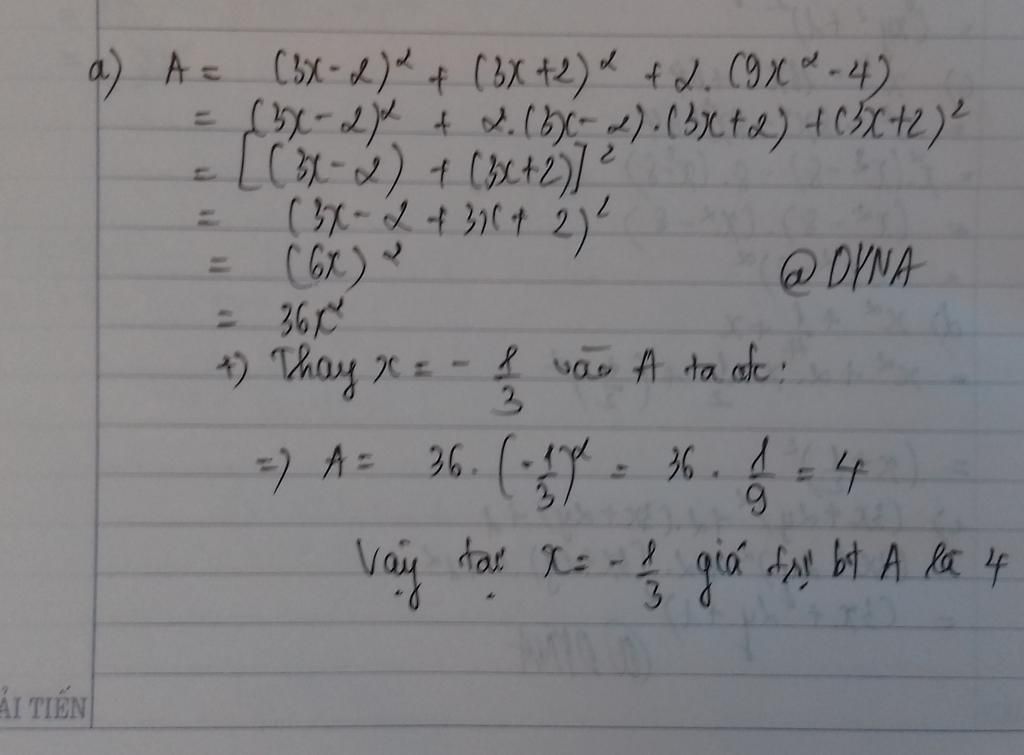 a) A = (3x-2)² + (3x+2)² + 2.(9x²-4)
= (3x-2)² + 2.(3x-2).(3x+2) + (3x+2)²
= [(3x-2) + (3x+2)]²
= (3x-2+3x+2)²
= (6x)²
@DYNA
= 36x²
+) Thay x = -1/3 vào A ta đc:
=) A = 36.(-1/3)² = 36.1/9 = 4
Vậy tại x = -1/3 giá trị bt A là 4
ẢI TIẾN